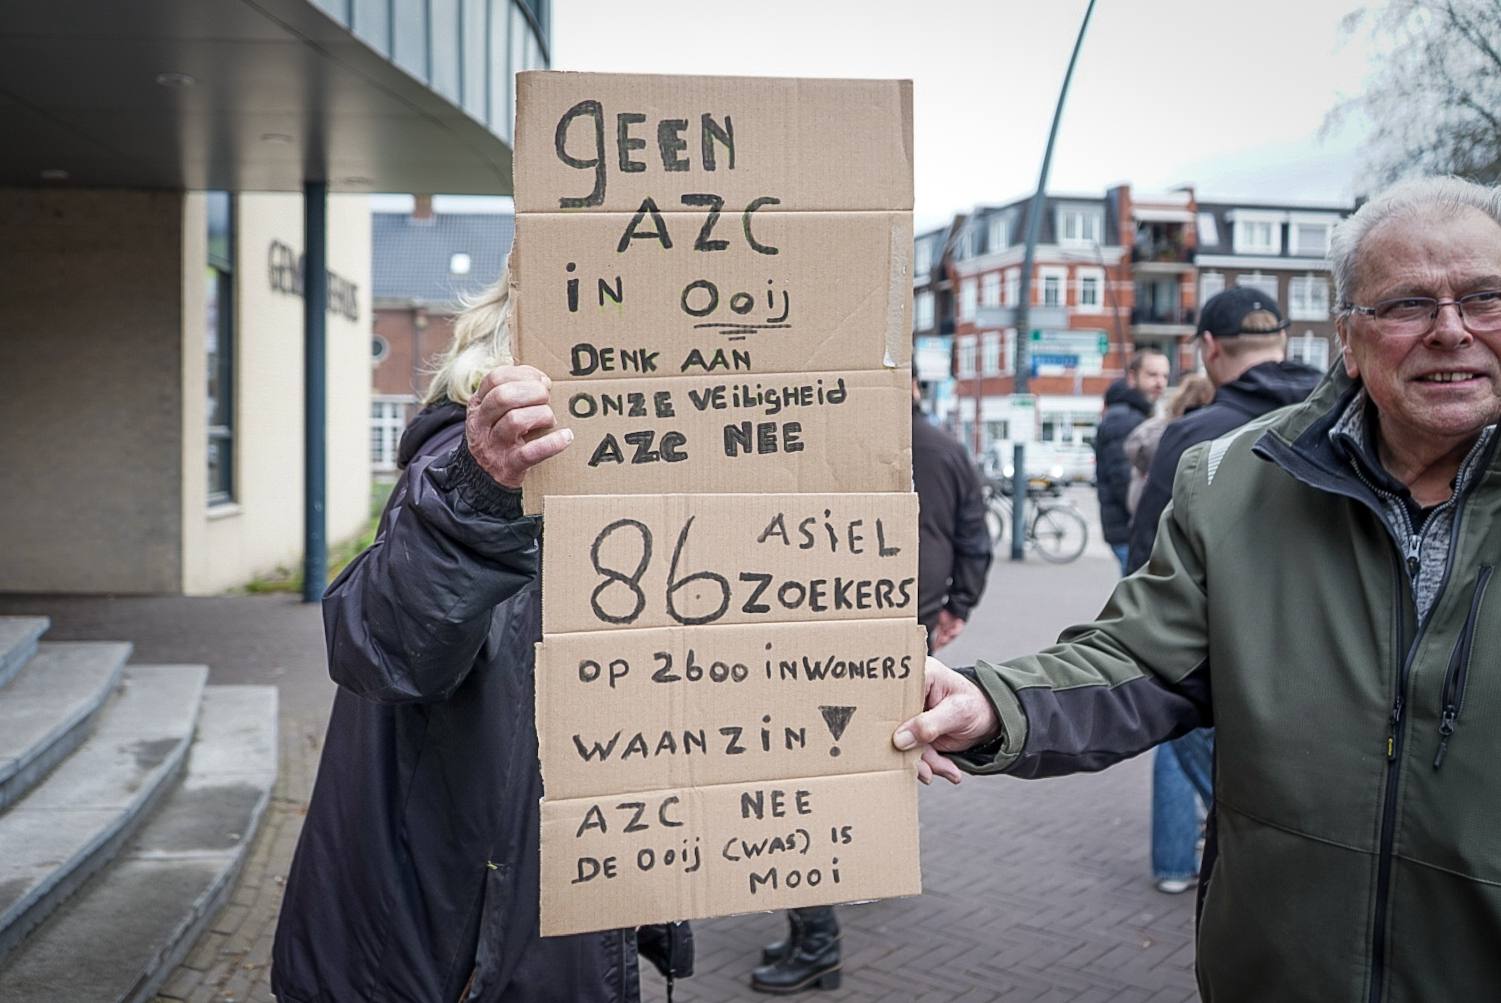 gEEN
AZC
iN Ooij
DENK AAN
ONZE VEiLigHEid
AZC NEE
86 ASiEL
ZOEKERS
OP 2600 iNWONERS
WAANZiN!
AZC NEE
DE Ooij (WAS) IS
MOOi